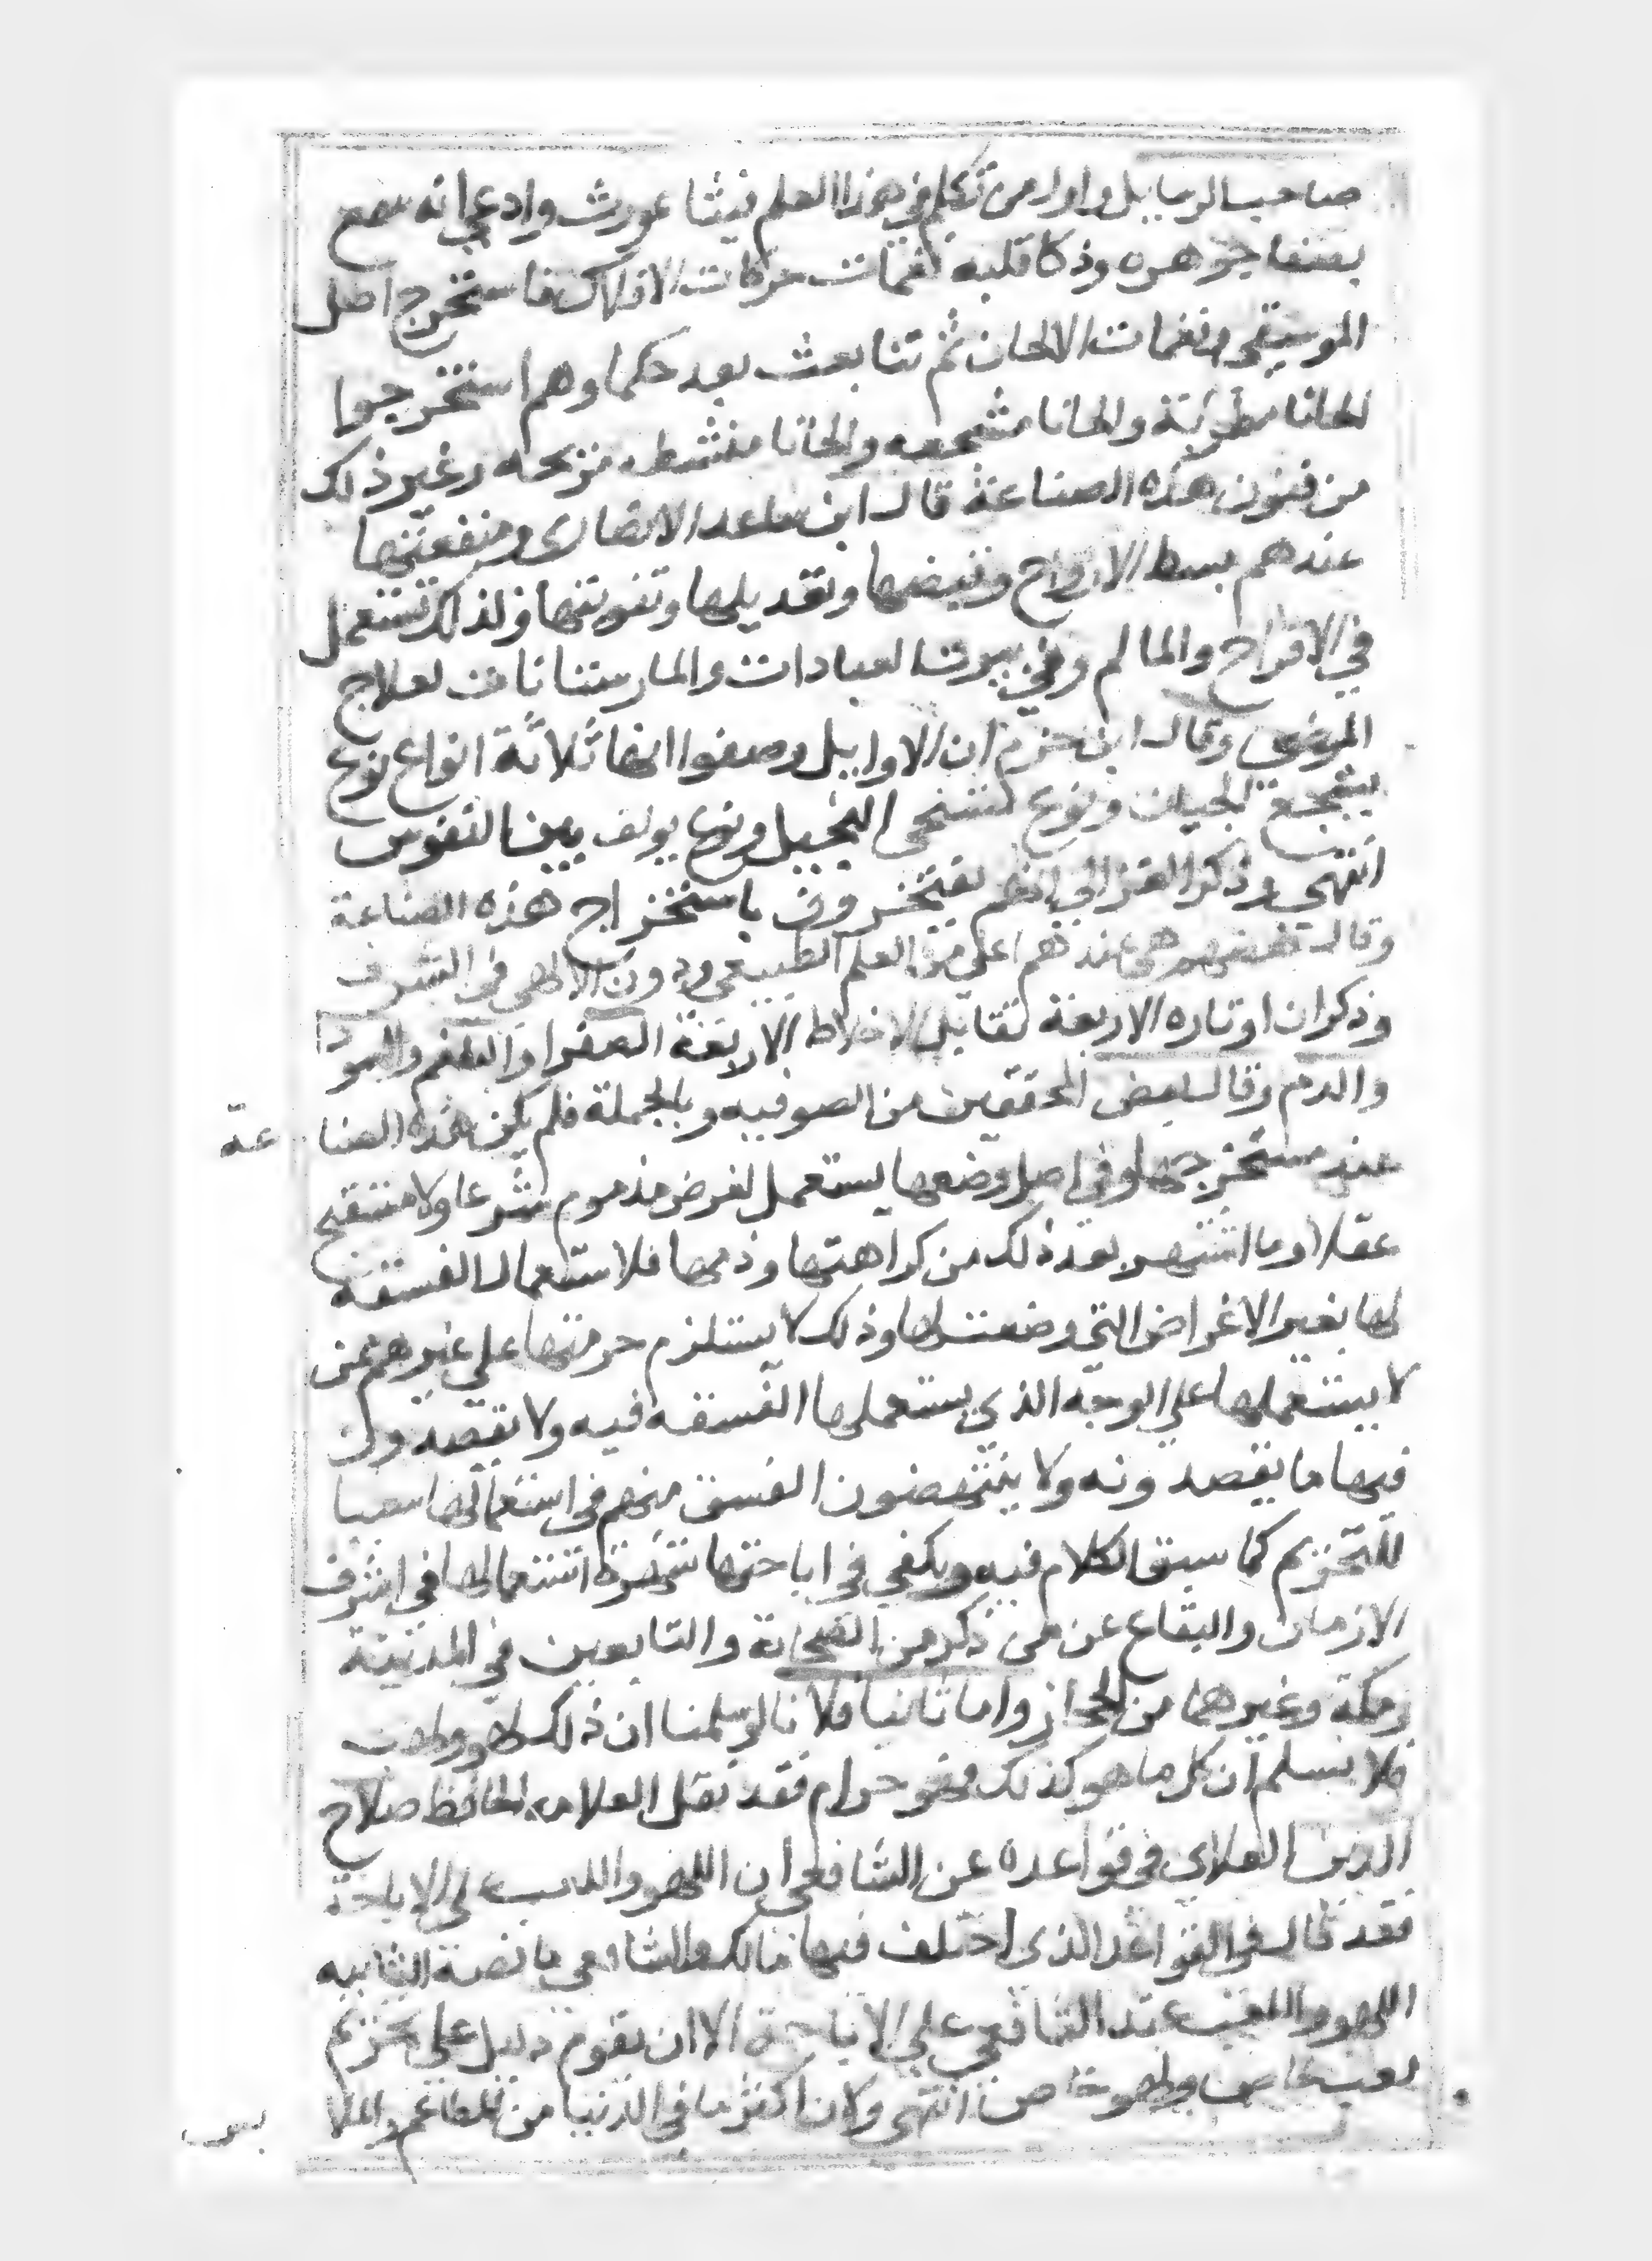 صاحب الرسايل واول من تكلم في هذا العلم فيثاغورث وادعى انه سمع
بصفا جوهره وذكا قلبه نغمات حركات الافلاك فاستخرج اصل
الموسيقى ونغمات الالحان ثم تتابعت بعد حكماوهم استخرجوا
الحانا مطربة والحانا مشجعه والحانا منشطه مزيحه وغير ذلك
من فنون هذه الصناعة قال ابن ساعد الانصارى ومنفعتها
عندهم بسط الارواح وقبضها وتعديلها وتقويتها ولذلك تستعمل
في الافراح والمالم وفي بيوت العبادات والمارستانات لعلاج
المرضى وقال ابن حزم ان الاوايل وصفوا انها ثلاثة انواع نوع
يشجع الجبان ونوع يسخى البخيل ونوع يولف بين النفوس
انتهى وذكر الغزالي انهم يفتخرون باستخراج هذه الصناعة
وقال بعضهم هي عندهم اعلى من العلم الطبيعي ودون الالهى في الشرف
وذكر ان اوتاره الاربعة تقابل الاخلاط الاربعة الصفرا والبلغم والسودا
والدم وقال بعض المحققين من الصوفيه وبالجملة فلم يكن هذه الصناعة
عند مستخرجها وفي اصل وضعها يستعمل لغرض مذموم شرعا ولا مستقبح
عقلا وما اشتهر بعد ذلك من كراهتها وذمها فلاستعمال الفسقه
لها بغير الاغراض التي وضعت لها وذلك لا يستلزم حرمتها على غيرهم عن
لا يستعملها على الوجه الذي يستعملها الفسقه فيه ولا يقصدون
فيها ما يقصدونه ولا ينتهضون الفسق منهم في استعمالها سببا
للتحريم كما سبق الكلام فيه ويكفي في اباحتها شهرة استعمالها في اشرف
الازمان والبقاع عن من ذكر من الصحابة والتابعين في المدينة
ومكة وغيرهما من الحجاز واما ثانيا فلانا لو سلمنا ان ذلك لهو ولعب
فلا نسلم ان كل ما هو كذلك فهو حرام فقد نقل العلامه الحافظ صلاح
الدين العلاى في قواعده عن الشافعى ان اللهو واللعب على الاباحة
فقد قال في القواعد الذى اختلف فيها مالك والشافعي ما نصه الثانيه
اللهو واللعب عند الشافعي على الاباحة الا ان يقوم دليل على تحريم
لعب خاص ولهو خاص انتهى ولان اكثر ما في الدنيا من المطاعم والملابس